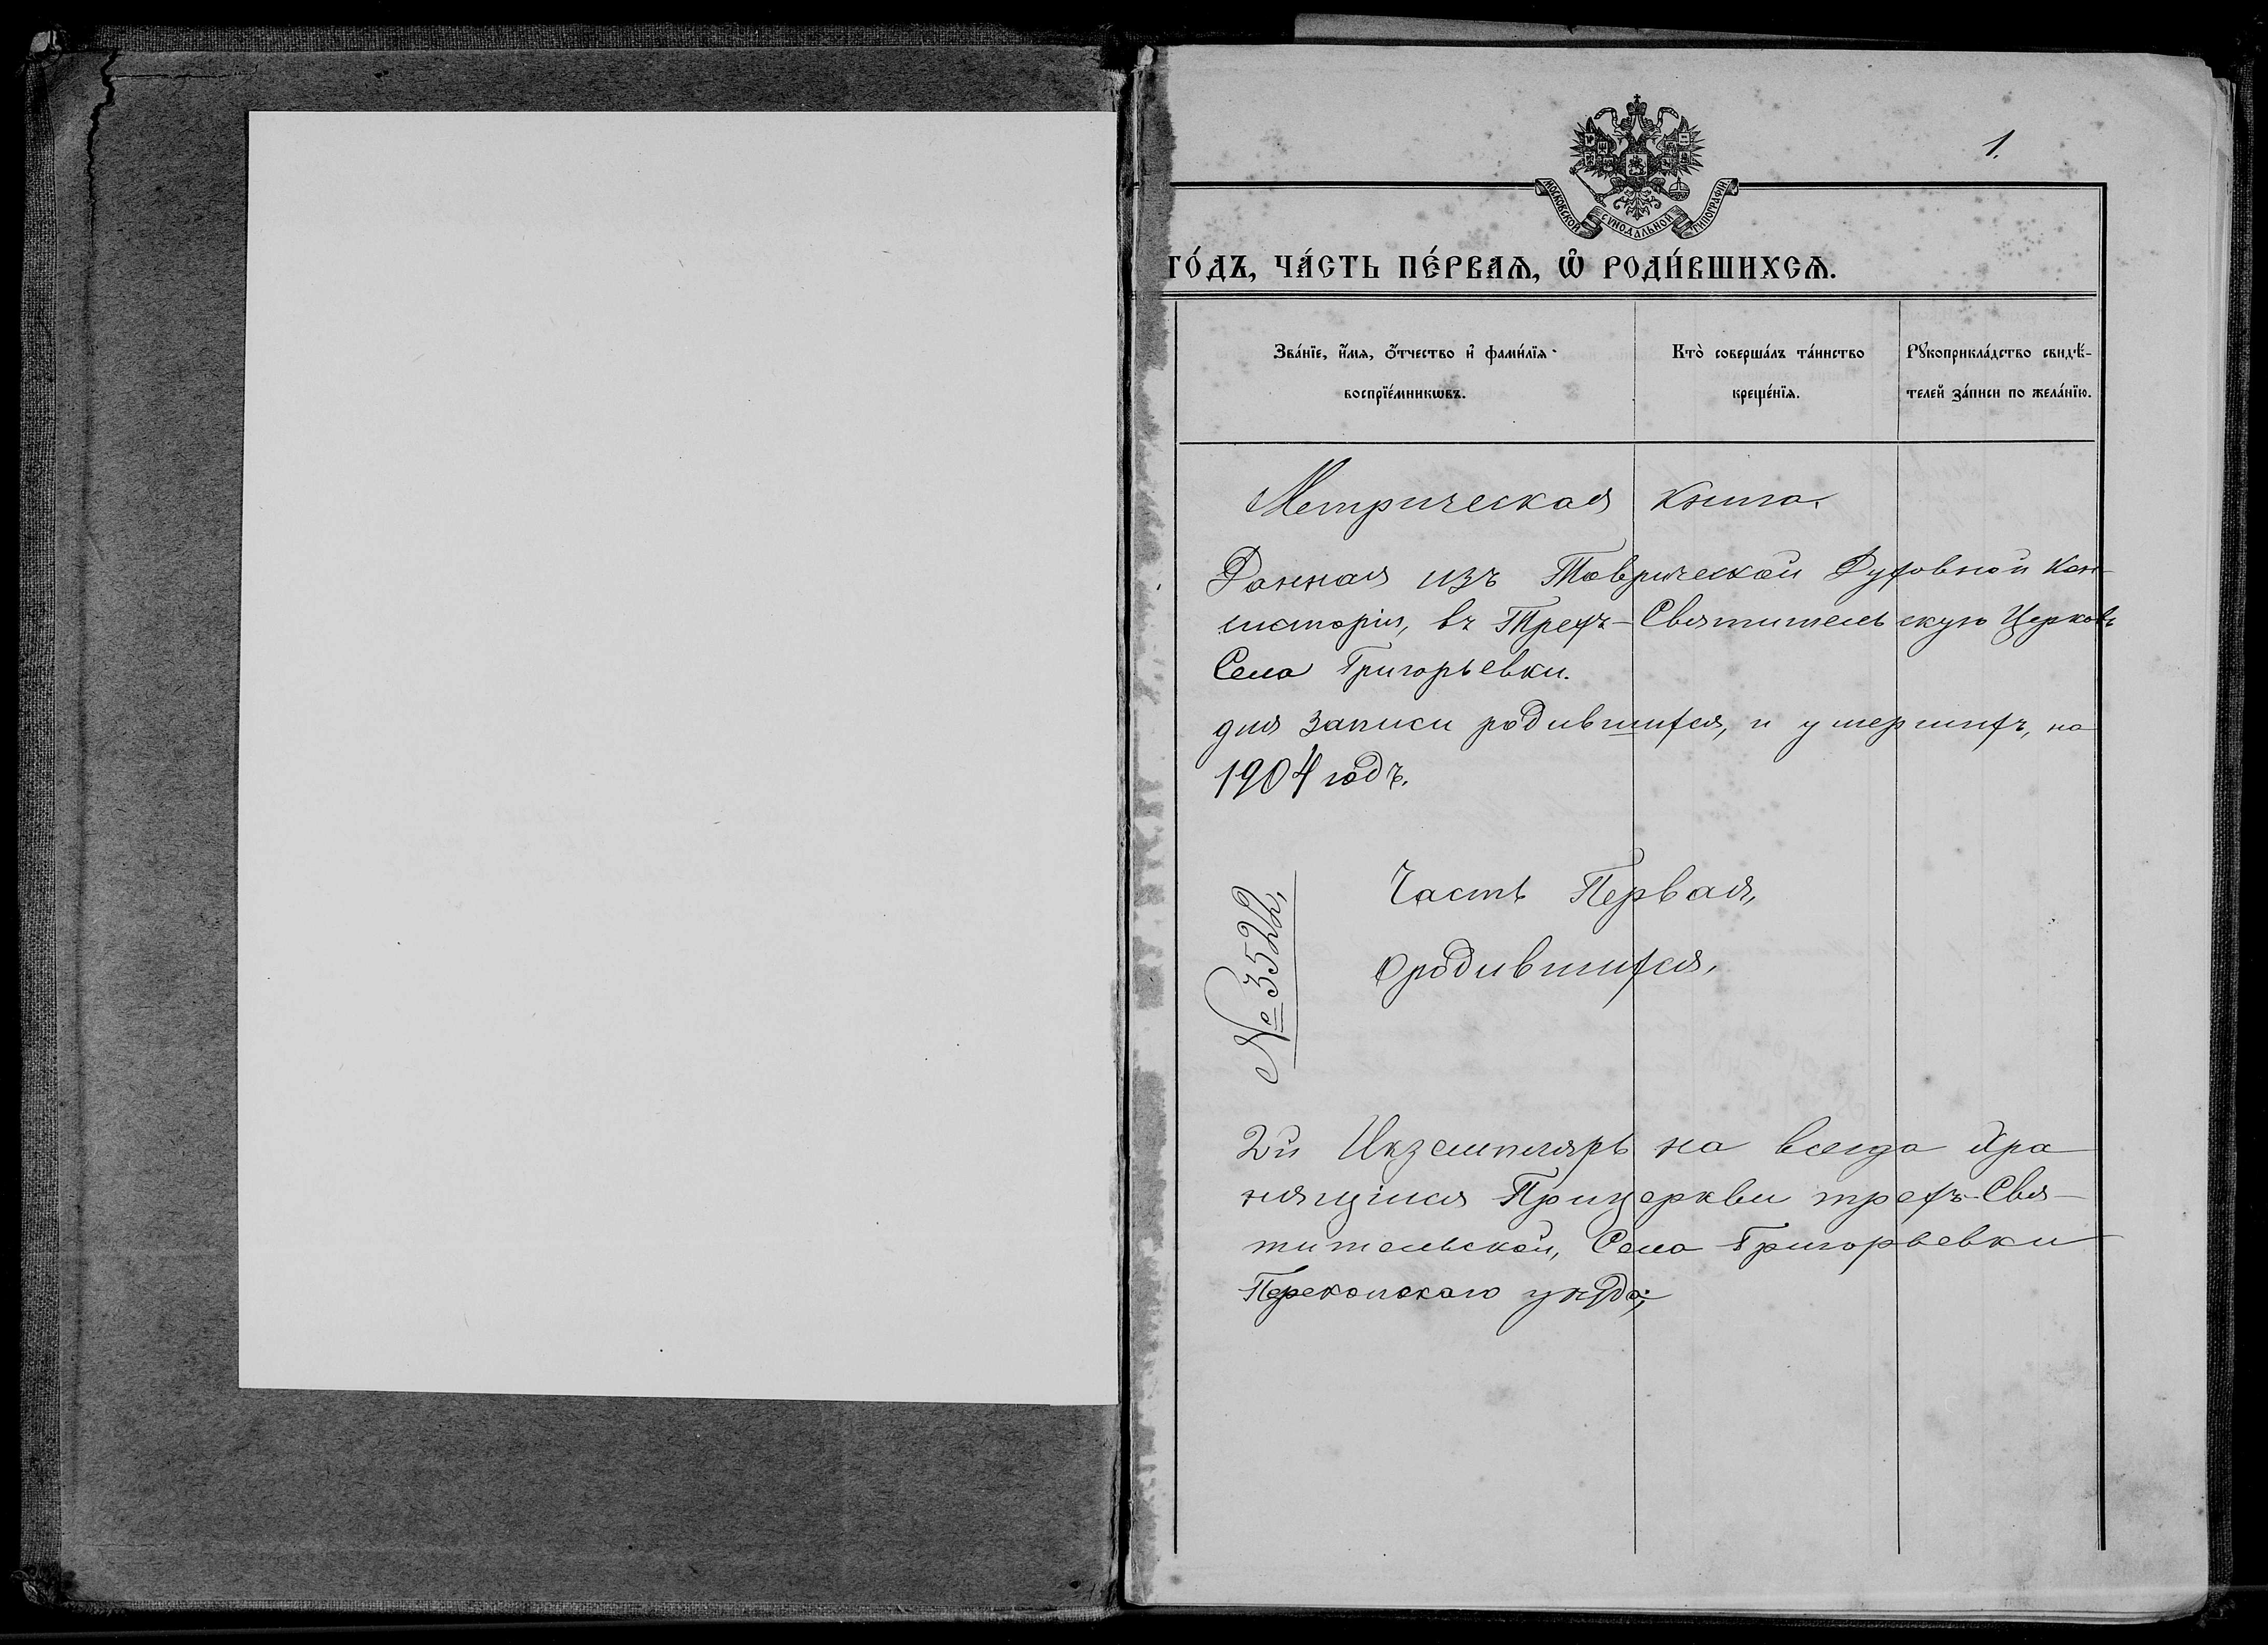 1.
МОСКОВСКОЙ СѴНОДАЛЬНОЙ ТИПОГРАФІИ.
ГО́ДЪ, ЧА́СТЬ ПЕ́РВАѦ, Ѡ҆ РОДИ́ВШИХСѦ.
Зва́нїе, и҆́мѧ, ѻ҆́тчество и҆ фами́лїѧ
воспрїе́мникѡвъ.
Кто̀ соверша́лъ та́инство
креще́нїѧ.
Рꙋкоприкла́дство свидѣ́-
телей за́писи по жела́нїю.
Метрическая Книга.
Данная изъ Таврической Духовной Кон-
систоріи, въ Трехъ-Святительскую Церковь
Села Григорьевки.
для записи родившихся, и умершихъ, на
1904 годъ.
Часть Первая,
О родившихся,
№ 3522,
2й Икземпляръ на всегда хра
нящійся При церкви трехъ-Свя-
тительской, Села Григорьевки
Перекопскаго уѣзда;